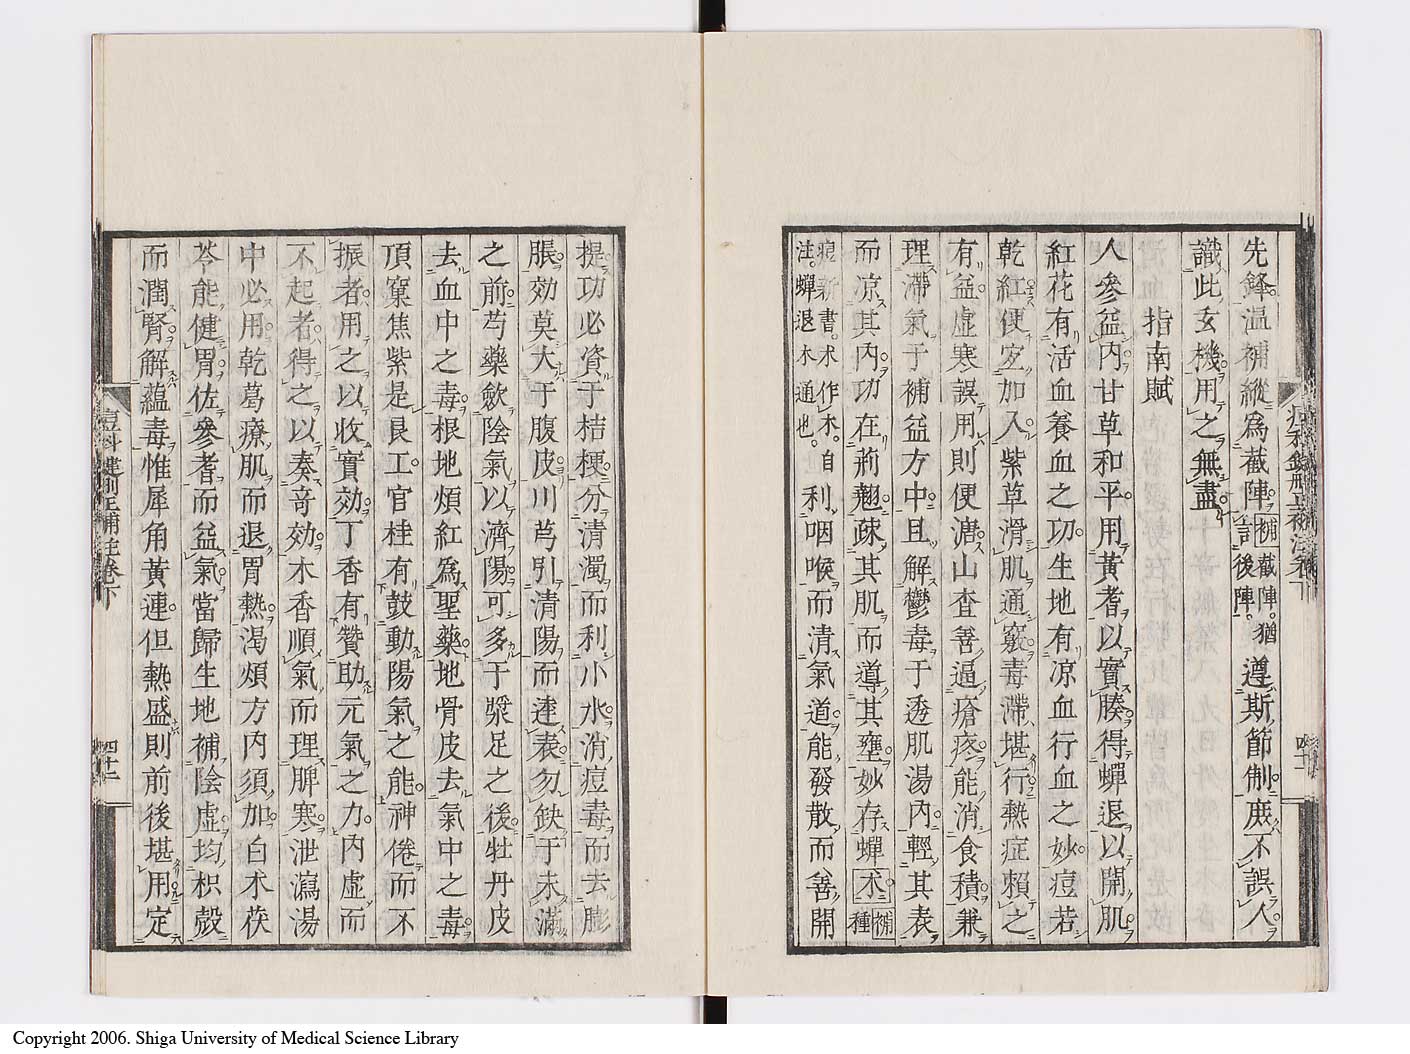 先鋒溫補縱爲截陣補言截陣猶後陣。遵斯節制庶不誤人
識此玄機用之無盡
指南賦
人參益內甘草和平用黃耆以實腠得蟬退以開肌
紅花有活血養血之功生地有凉血行血之妙痘若
乾紅便宜加入紫草滑肌通竅毒滯堪行熱症賴之
有益虛寒誤用則便溏山查善逼瘡疼能消食積兼
理滯氣于補益方中且解鬱毒于透肌湯內輕其表
而凉其內功在荊翹疎其肌而導其壅妙存蟬朮補種
痘新書。朮作木。自
註。蟬退木通也。
利咽喉而清氣道能發散而善開
提功必資于桔梗分清濁而利小水消痘毒而去膨
脹効莫大于腹皮川芎引清陽而達表勿缺于未滿
之前芍藥斂陰氣以濟陽可多于漿足之後牡丹皮
去血中之毒根地煩紅爲聖藥地骨皮去氣中之毒
頂窠焦紫是良工官桂有鼓動陽氣之能神倦而不
振者用之以收實効丁香有贊助元氣之力內虛而
不起者得之以奏奇効木香順氣而理脾寒泄瀉湯
中必用乾葛療肌而退胃熱渴煩方內須加白朮茯
苓能健胃佐參耆而益氣當歸生地補陰虛均枳殼
而潤腎解蘊毒惟犀角黃連但熱盛則前後堪用定
痘科鍵刪正補註卷下
四十二
Copyright 2006. Shiga University of Medical Science Library